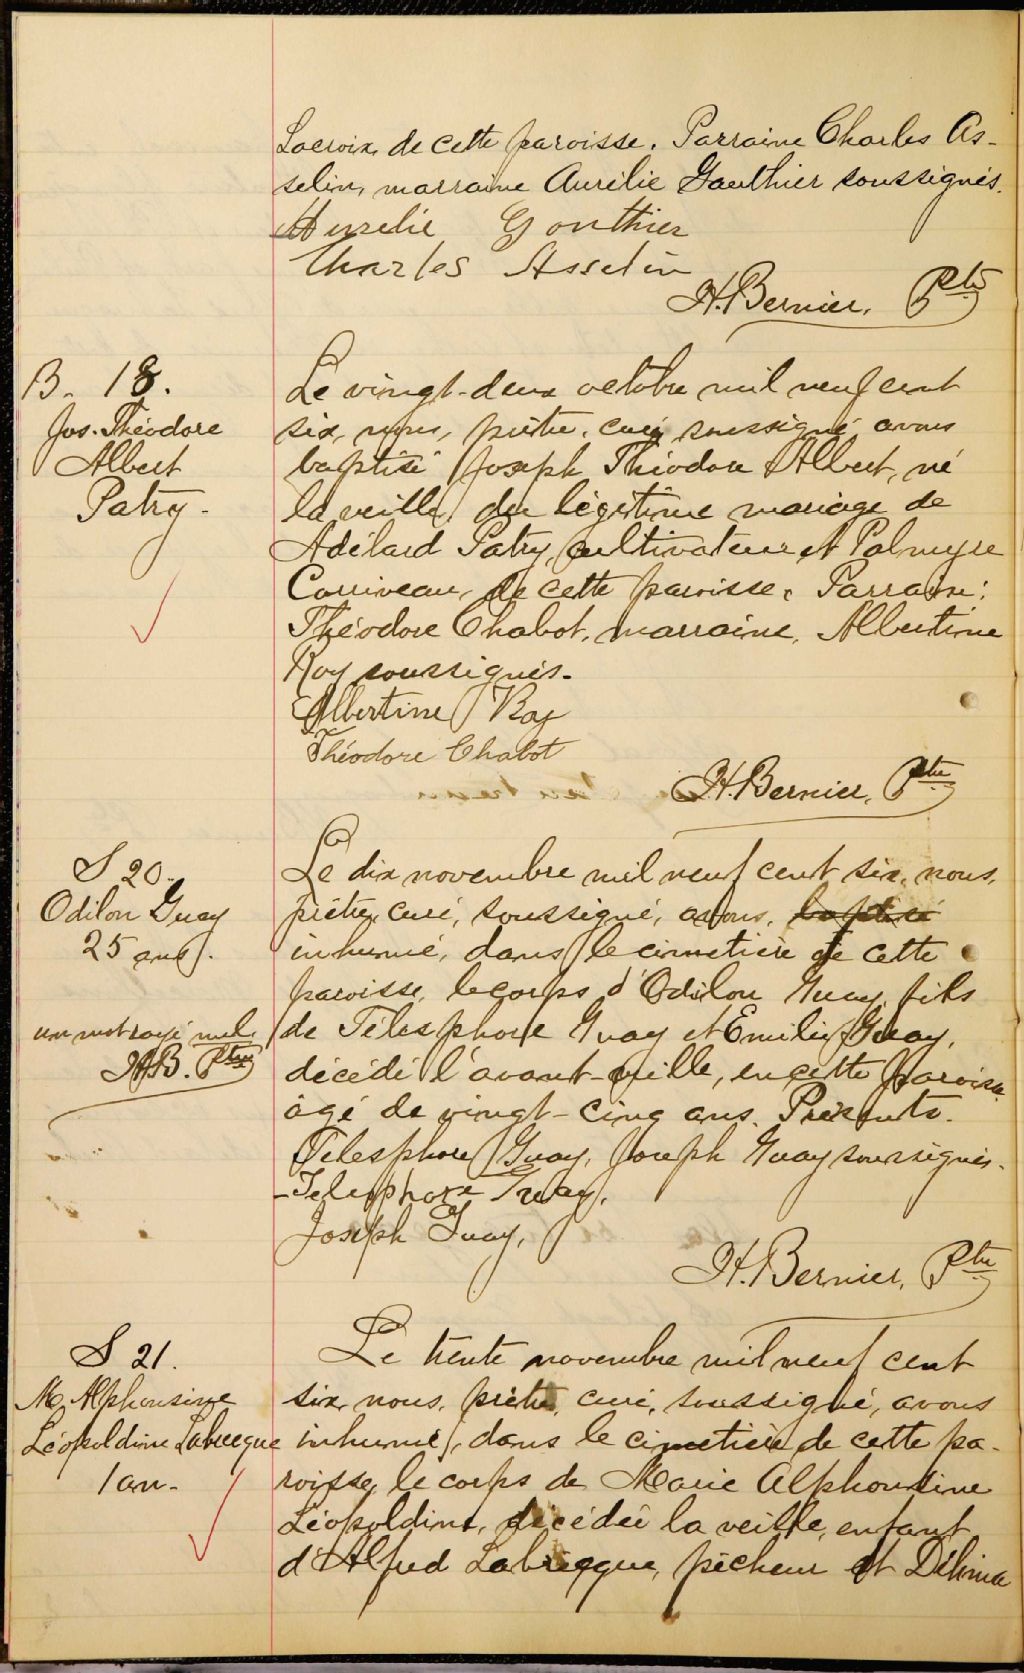 Lacroix, de cette paroisse. Parraine Charles As-
selin, marraine Aurélie Gauthier soussignés.
Aurelie Gonthier
Charles Asselin
H. Bernier, Ptre
B. 18.
Jos. Théodore
Albert
Patry.
Le vingt-deux octobre mil neuf cent
six, nous, prêtre, curé soussigné avons
baptisé Joseph Théodore Albert, né
la veille, du légitime mariage de
Adélard Patry, cultivateur et Palmyre
Corriveau, de cette paroisse. Parrain:
Théodore Chabot, marraine, Albertine
Roy soussignés.
Albertine Roy
Théodore Chabot
H. Bernier, Ptre
S 20.
Odilon Guay
25 ans.
un mot rayé nul.
H.B. Ptre
Le dix novembre mil neuf cent six, nous,
prêtre, curé, soussigné, avons, baptisé
inhumé, dans le cimetière de cette
paroisse, le corps d'Odilon Guay, fils
de Télesphore Guay et Emilie Guay,
décédé l'avant-veille, en cette paroisse
âgé de vingt-cinq ans. Présents.
Télesphore Guay, Joseph Guay soussignés.
Telesphore Guay.
Joseph Guay,
H. Bernier, Ptre
S 21.
M. Alphonsine
Léopoldine Labrecque
1 an.
Le trente novembre mil neuf cent
six, nous, prêtre, curé, soussigné, avons
inhumé, dans le cimetière de cette pa-
roisse, le corps de Marie Alphonsine
Léopoldine, décédée la veille, enfant
d'Alfred Labrecque, pêcheur et Délima